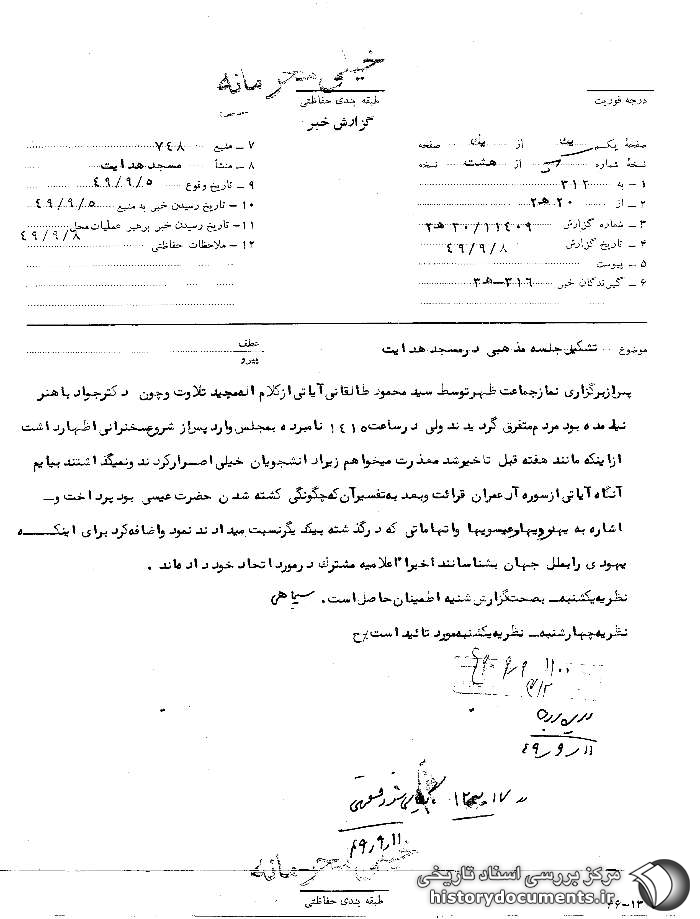 خیلی محرمانه
طبقه بندی حفاظتی
گزارش خبر
درجه فوریت
صفحهٔ یکم از یک صفحه
نسخهٔ شماره از هشت نسخه
۱ – به ۳۱۲
۲ – از ۲۰ هـ ۲
۳ – شماره گزارش ۱۱۴۰۹ / ۲۰ هـ ۲
۴ – تاریخ گزارش ۴۹/۹/۸
۵ – پیوست
۶ – گیرندگان خبر ۳۱۶ – هـ ۳
۷ – منبع ۷۴۸
۸ – منشأ مسجد هدایت
۹ – تاریخ وقوع ۴۹/۹/۵
۱۰ – تاریخ رسیدن خبر به منبع ۴۹/۹/۵
۱۱ – تاریخ رسیدن خبر برهبر عملیات محل ۴۹/۹/۸
۱۲ – ملاحظات حفاظتی
موضوع تشکیل جلسه مذهبی در مسجد هدایت
عطف
پیرو
پس از برگزاری نماز جماعت ظهر توسط سید محمود طالقانی آیاتی از کلام المجید تلاوت و چون دکتر جواد با هنر
نیامده بود مردم متفرق گردیدند ولی در ساعت ۱۴۱۵ نامبرده بمجلس وارد پس از شروع سخنرانی اظهار داشت
از اینکه مانند هفته قبل تاخیر شد معذرت میخواهم زیرا دانشجویان خیلی اصرار کردند و نمیگذاشتند بیایم
آنگاه آیاتی از سوره آل عمران قرائت و بعد به تفسیر آن که چگونگی کشته شدن حضرت عیسی بود پرداخت و
اشاره به یهودیها و عیسویها و اتهاماتی که در گذشته بیکدیگر نسبت میدادند نمود و اضافه کرد برای اینکه
یهودی را بملل جهان بشناسانند اخیراً اعلامیه مشترک در مورد اتحاد خود داده‌اند .
نظریه یکشنبه – بصحت گزارش شنبه اطمینان حاصل است . سپاهی
نظریه چهارشنبه – نظریه یکشنبه مورد تائید است
۴۹/۹/۱۱
۴۹/۹/۱۱
خیلی محرمانه
طبقه بندی حفاظتی
مرکز بررسی اسناد تاریخی
historydocuments.ir